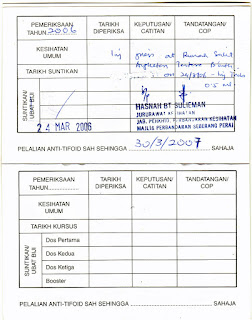 PEMERIKSAAN TAHUN 2006
TARIKH DIPERIKSA
KEPUTUSAN/ CATITAN
TANDATANGAN/ COP
KESIHATAN UMUM
inj given at Rumah Sakit
TARIKH SUNTIKAN
Angkatan Tentera
on 24/3/06 - inj
0.5 ml
SUNTIKAN/ UBAT BIJI
24 MAR 2006
HASNAH BT SULIEMAN
JURURAWAT
JAB. PERKHID. PERBANDARAN KESIHATAN
MAJLIS PERBANDARAN SEBERANG PERAI
PELALIAN ANTI-TIFOID SAH SEHINGGA 30/3/2007
PEMERIKSAAN TAHUN....................
TARIKH DIPERIKSA
KEPUTUSAN/ CATITAN
TANDATANGAN/ COP
KESIHATAN UMUM
TARIKH KURSUS
SUNTIKAN/ UBAT BIJI
Dos Pertama
Dos Kedua
Dos Ketiga
Booster
PELALIAN ANTI-TIFOID SAH SEHINGGA ........................ SAHAJA